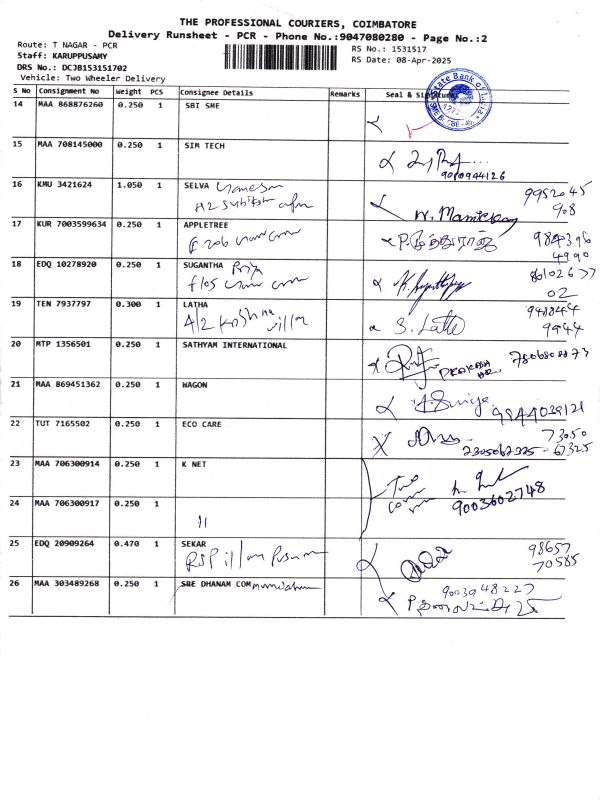 THE PROFESSIONAL COURIERS, COIMBATORE
Delivery Runsheet - PCR - Phone No.:9047080280 - Page No.:2
Route: T NAGAR - PCR
Staff: KARUPPUSAMY
DRS No.: DCJB153151702
Vehicle: Two Wheeler Delivery
RS No.: 1531517
RS Date: 08-Apr-2025
S No Consignment No Weight PCS Consignee Details Remarks Seal & Signature
State Bank of
14 MAA 868876260 0.250 1 SBI SME
15 MAA 708145000 0.250 1 SIM TECH
9000944126
16 KMU 3421624 1.050 1 SELVA
9952045
908
17 KUR 7003599634 0.250 1 APPLETREE
984396
4990
18 EDQ 10278920 0.250 1 SUGANTHA Priya
F105
02
19 TEN 7937797 0.300 1 LATHA
A/2 Krishna villa
S. Latha
9944
20 MTP 1356501 0.250 1 SATHYAM INTERNATIONAL
PRAKASH
21 MAA 869451362 0.250 1 WAGON
22 TUT 7165502 0.250 1 ECO CARE
73050
67325
23 MAA 706300914 0.250 1 K NET
Two
9003602748
24 MAA 706300917 0.250 1
25 EDQ 20909264 0.470 1 SEKAR
98657
70585
26 MAA 303489268 0.250 1 SRE DHANAM COM
9003948227